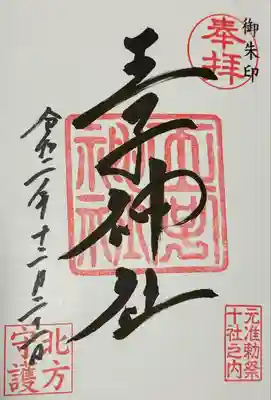 御朱印
奉拝
王子神社
王子神社
元准勅祭
十社之内
令和二年十二月二十六日
北方
守護